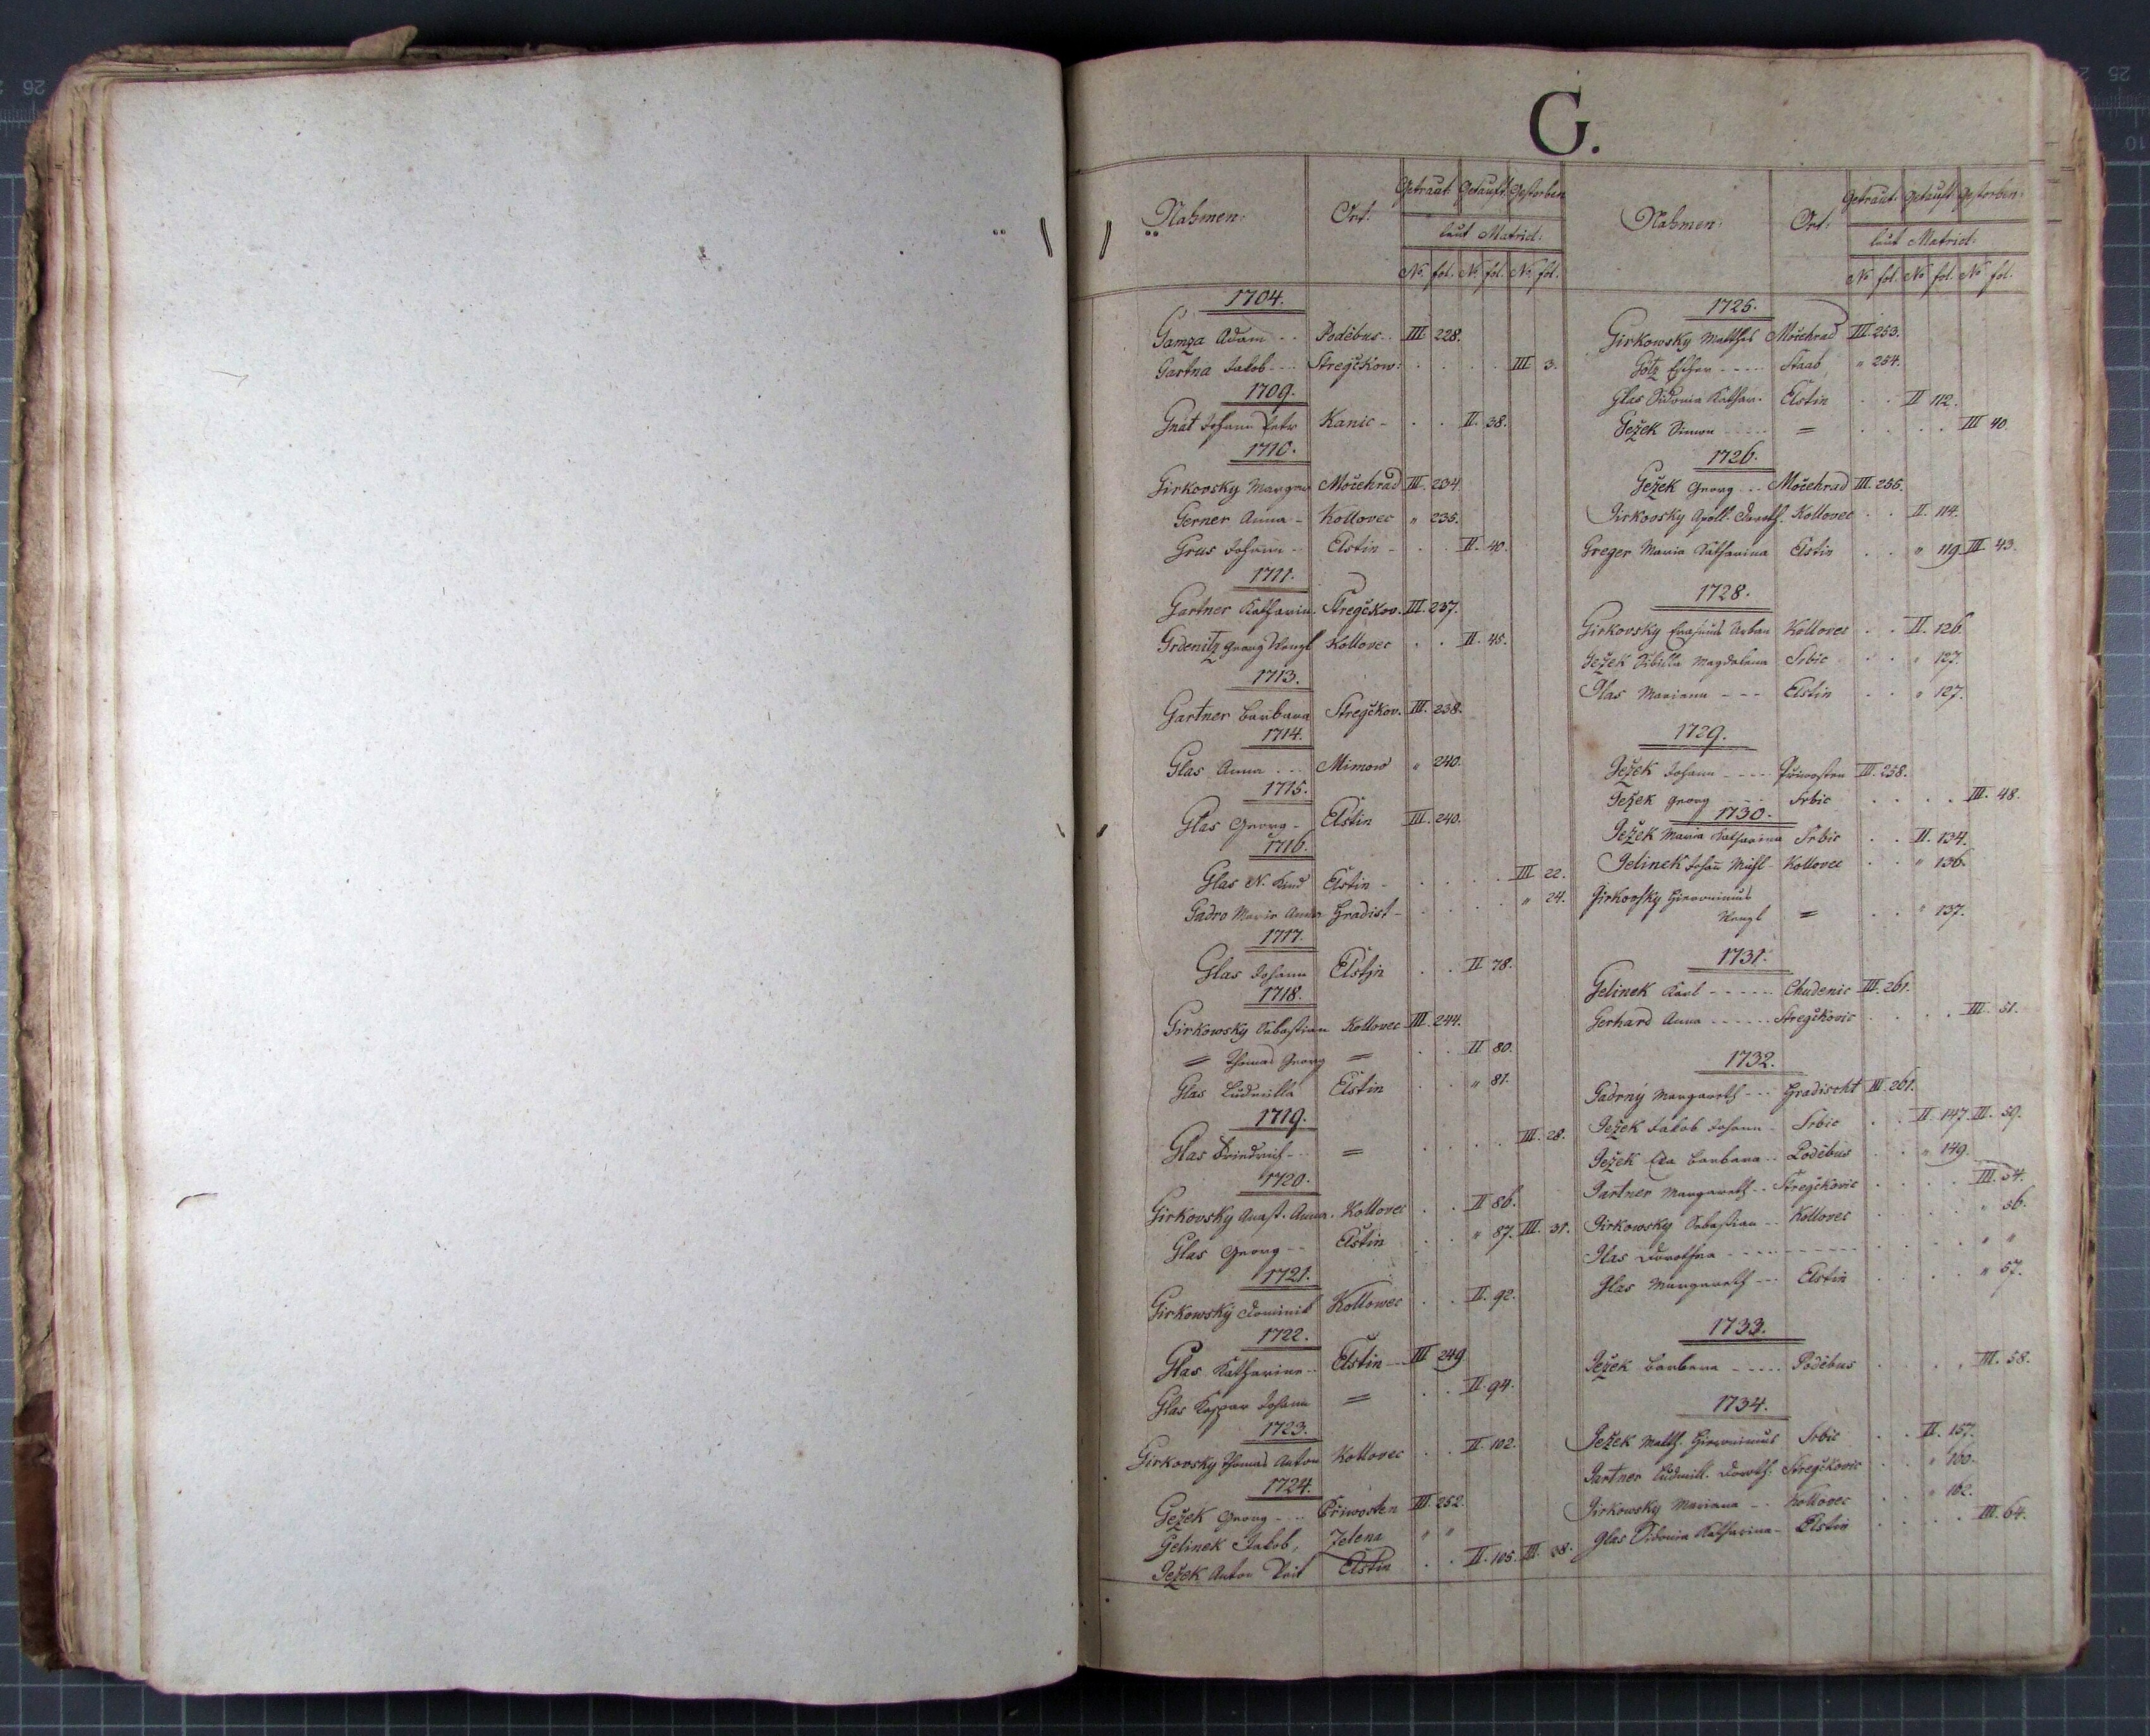 G.
Nahmen: Ort: Getraut: Getauft: Gestorben
laut Matricl:
No. fol. No. fol. No. fol.
1704.
Gamza Adam - - Poděbus - - III 228.
Gartna Jakob - - - Stregčkow: . . . . III 3.
1709.
Gnát Johann Petr Kanic - . . II. 38.
1710.
Girkovsky Margar Močehrad III. 234.
Gerner Anna - Kollovec " 235.
Grus Johann - - Elstin - . . II. 40.
1711.
Gartner Katharin. Stregčkov. III. 237.
Grdenitz Georg Wenzl Kollovec . . II. 45.
1713.
Gartner Barbara Stregčkov. III. 238.
1714.
Glas Anna - - - Mimow " 240.
1715.
Glas Georg - Elstin III. 240.
1716.
Glas N. Kind Elstin - . . . . III 22.
Gadro Maria Anna Gradist - . . . . " 24.
1717.
Glas Johann Elstjn . . II 78.
1718.
Girkowsky Sebastian Kollovec III. 244.
= Thomas Georg = . . II 80.
Glas Ludmilla Elstin . . " 81.
1719.
Glas Friedrich - - = . . . . III. 28.
1720.
Girkovsky Anast. Anna. Kollovec . . II 86.
Glas Georg - - Elstin . . " 87. III. 31.
1721.
Girkowský Dominik Kollowec . . II. 92.
1722.
Glas Katharina - - Elstin - - III 249
Glas Kaspar Johann = . . II. 94.
1723.
Girkovsky Thomas Anton Kollovec . . II. 102.
1724.
Gežek Georg - - - Přiwosten III. 252.
Gelinek Jakob, Jelena " "
Gežek Anton Veit Elstin . . II. 105. III. 38.
Nahmen: Ort: Getraut: Getauft: Gestorben:
laut Matricl:
No fol. No fol. No fol.
1725.
Girkowsky Matthes Močehrad III. 253.
Götz - - - - - Staab, " 254.
Glas Sidonia Kathar. Elstin . . II 112.
Gežek Simon - - - - - = . . . . III 40.
1726.
Gežek Georg - - - Močehrad III. 255.
Girkovsky Apoll. Doroth. Kollovec . . II. 114.
Greger Maria Katharina Elstin . . " 119. III 43.
1728.
Girkovsky Erasmus Urban Kollovec . . II. 126.
Gežek Sibilla Magdalena Srbic . . " 127.
Glas Mariana - - - Elstin . . " 127.
1729.
Gežek Johann - - - - Přiwosten III. 258.
Gežek Georg - - - Srbic . . . . III. 48.
1730.
Gežek Maria Katharina Srbic . . II. 134.
Gelinek Johañ Michl - Kollovec . . " 136.
Girkovsky Hieronimus
Wenzl = . . " 137.
1731.
Gelinek Karl - - - - - - Chudenic III. 261.
Gerhard Anna - - - - - - Stregčkovic . . . . III. 51.
1732.
Gadrný Margareth - - - Gradischt III. 261.
Gežek Jakob Johann - Srbic . . II. 147. III. 59.
Gežek Eva Barbara - - Poděbus . . " 149.
Gartner Margareth - - Stregčkovic . . . . III. 54.
Girkowsky Sebastian - - Kollovec . . . . " 56.
Glas Dorothea - - - - - - - - - - - . . . . " "
Glas Margareth - - - Elstin . . . . " 57.
1733.
Gežek Barbara - - - - - Poděbus . . . . III. 58.
1734.
Gežek Matth. Hieronimus Srbic . . II. 157.
Gartner Ludmill. Doroth. Stregčkovic . . " 160.
Girkowsky Mariana - - Kollovec . . " 162.
Glas Sidonia Katharina - Elstin . . . . III. 64.